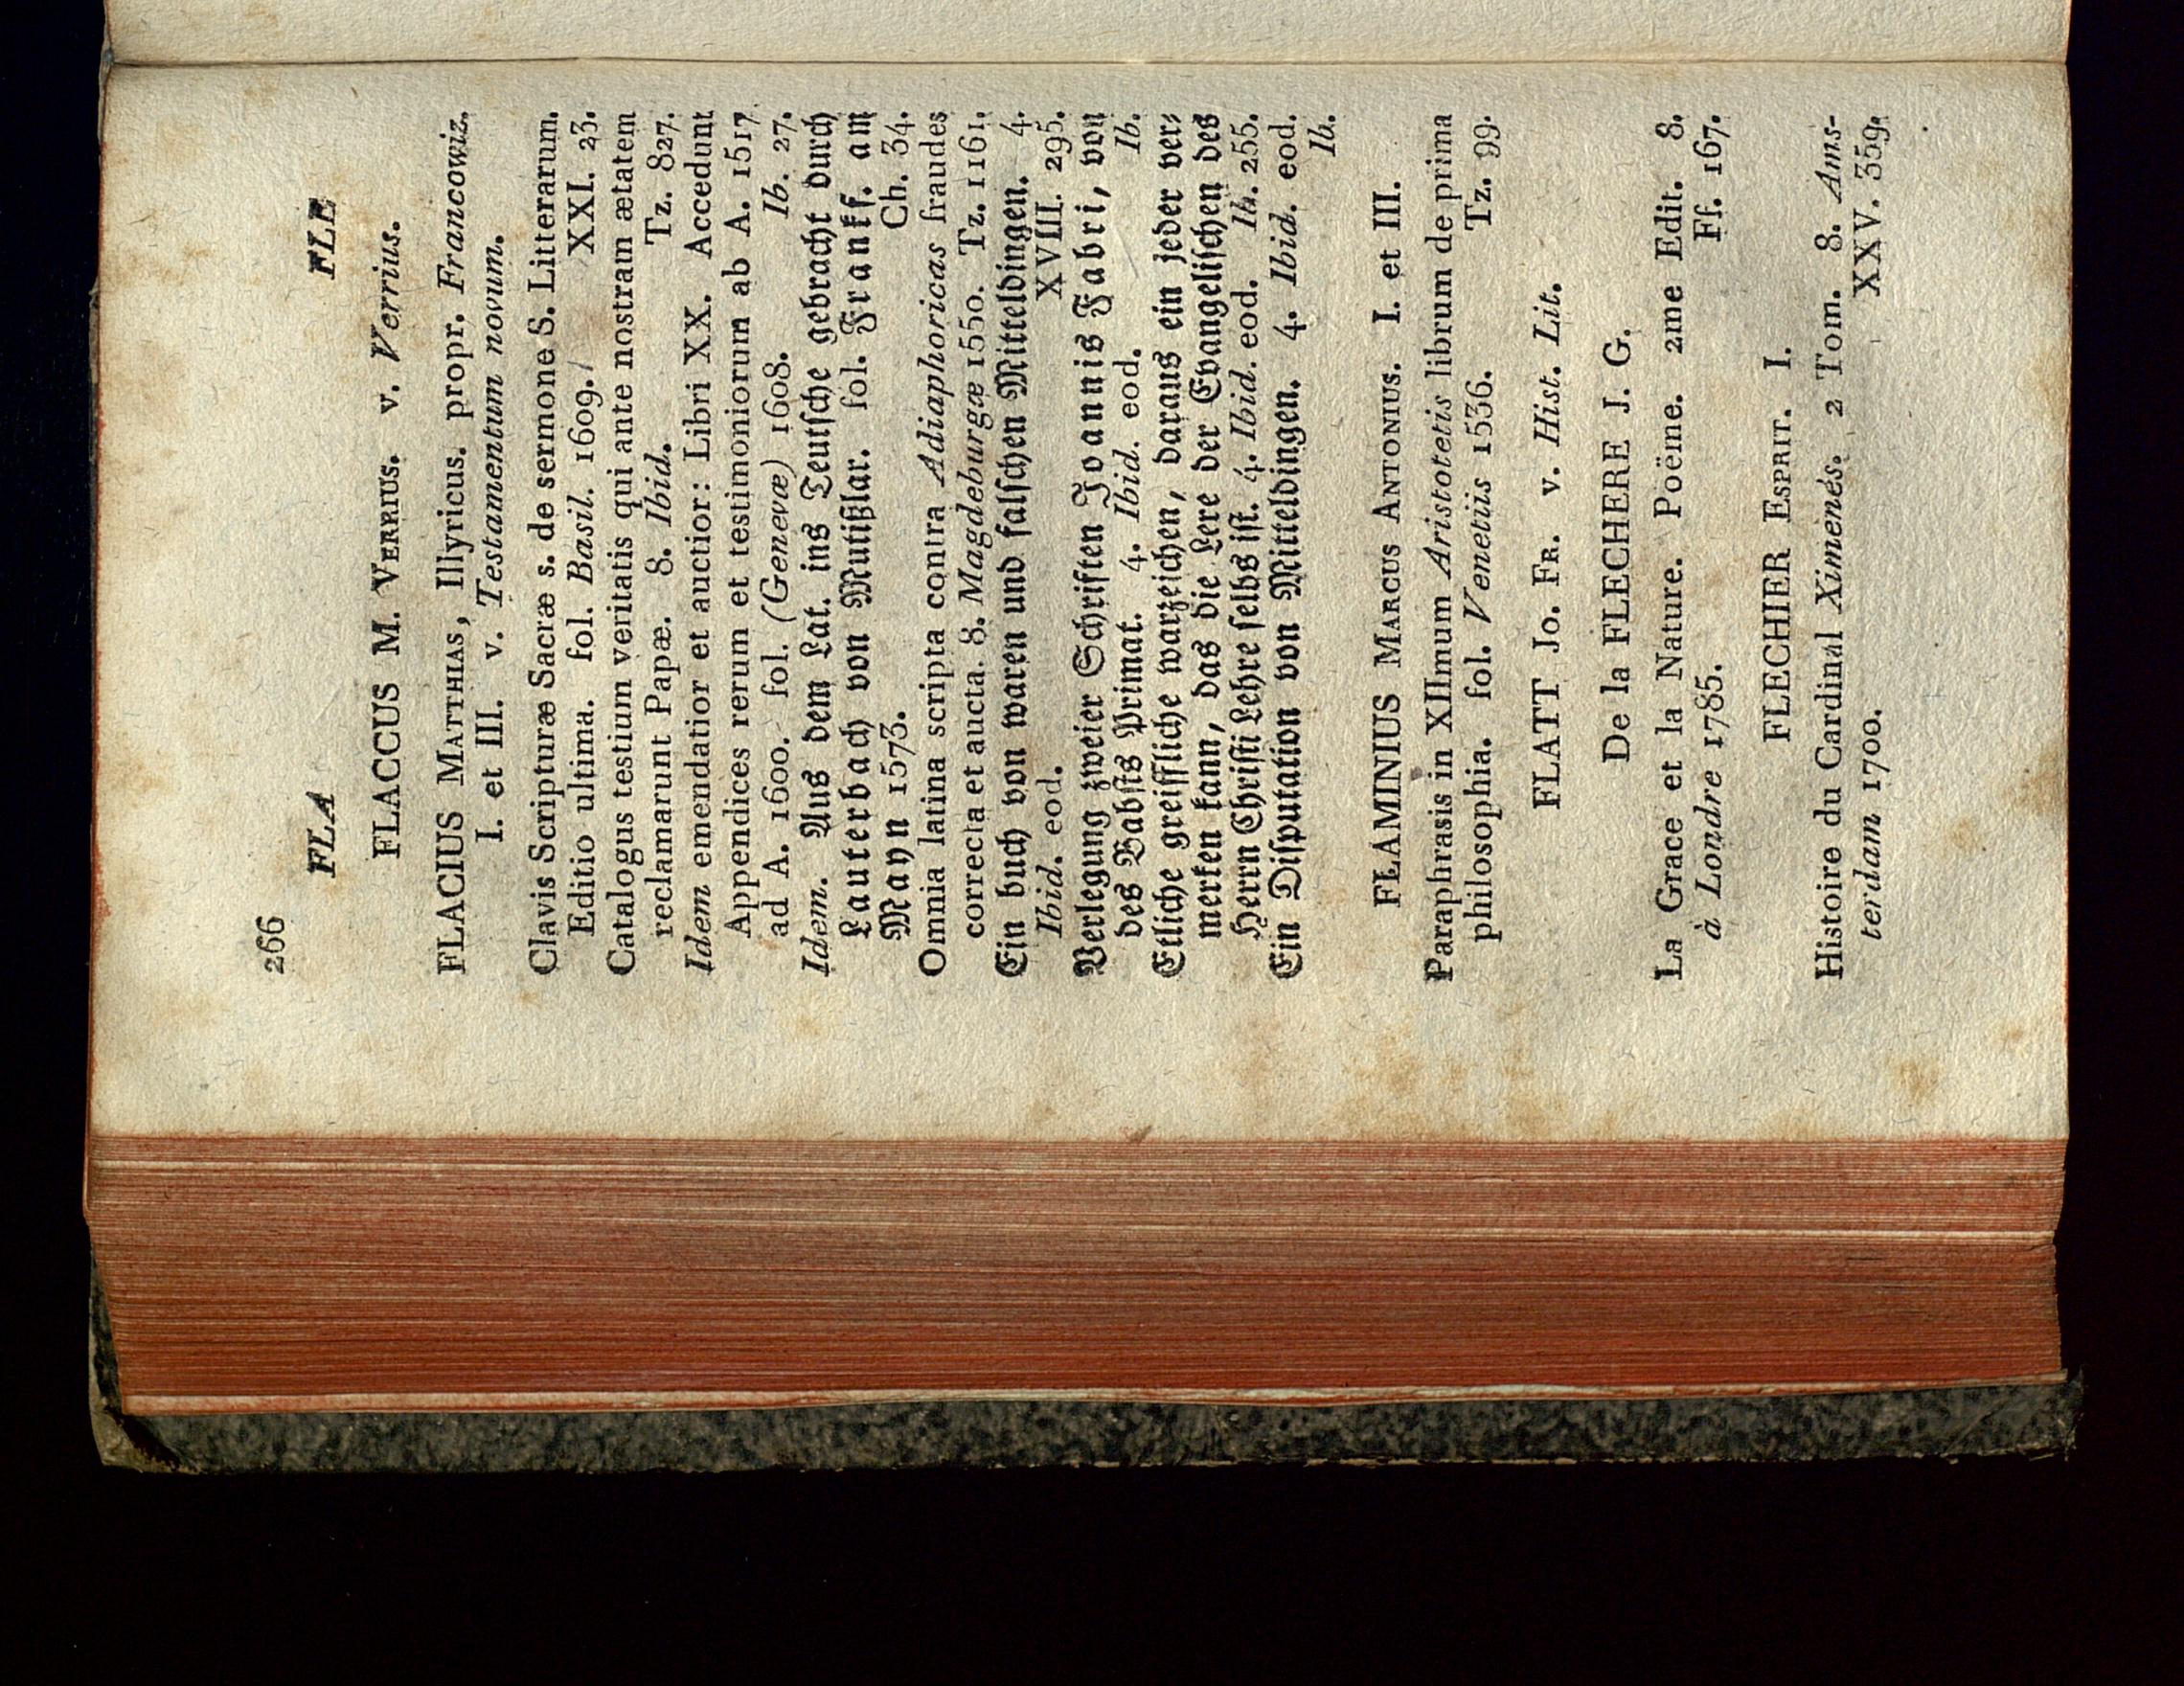 266
FLA FLE
FLACCUS M. VERRIUS. v. Verrius.
FLACIUS MATTHIAS, Illyricus. propr. Francowiz.
I. et III. v. Testamentum novum.
Clavis Scripturæ Sacræ s. de sermone S. Litterarum.
Editio ultima. fol. Basil. 1609. XXI. 23.
Catalogus testium veritatis qui ante nostram ætatem
reclamarunt Papæ. 8. Ibid. Tz. 827.
Idem emendatior et auctior: Libri XX. Accedunt
Appendices rerum et testimoniorum ab A. 1517
ad A. 1600. fol. (Genevæ) 1608. Ib. 27.
Idem. Aus dem Lat. ins Teutsche gebracht durch
Lauterbach von Mutißlar. fol. Frankf. am
Mayn 1573. Ch. 34.
Omnia latina scripta contra Adiaphoricas fraudes
correcta et aucta. 8. Magdeburgæ 1550. Tz. 1161.
Ein buch von waren und falschen Mitteldingen. 4.
Ibid. eod. XVIII. 295.
Verlegung zweier Schriften Joannis Fabri, von
des Babsts Primat. 4. Ibid. eod. Ib.
Etliche greiffliche warzeichen, daraus ein jeder ver-
merken kann, das die Lere der Evangelischen des
Herrn Christi Lehre selbs ist. 4. Ibid. eod. Ib. 255.
Ein Disputation von Mitteldingen. 4. Ibid. eod.
Ib.
FLAMINIUS MARCUS ANTONIUS. I. et III.
Paraphrasis in XIImum Aristotetis librum de prima
philosophia. fol. Venetiis 1536. Tz. 99.
FLATT JO. FR. v. Hist. Lit.
De la FLECHERE J. G.
La Grace et la Nature. Poëme. 2me Edit. 8.
à Londre 1785. Ff. 167.
FLECHIER ESPRIT. I.
Histoire du Cardinal Ximenés. 2 Tom. 8. Ams-
terdam 1700. XXV. 359.